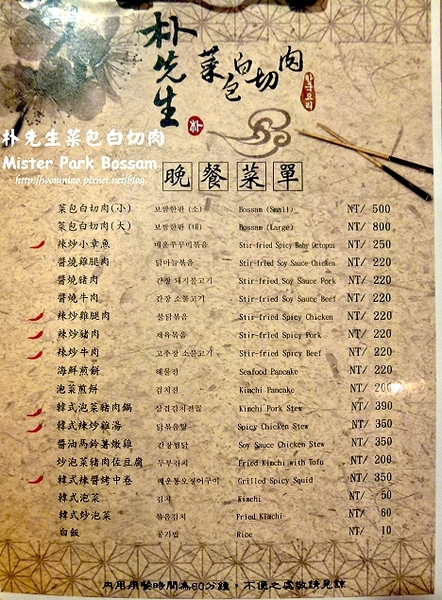 朴先生
菜包白切肉
한국요리
朴
朴先生菜包白切肉
Mister Park Bossam
晚餐菜單
菜包白切肉(小) 보쌈한판 (소) Bossam (Small) NT/ 500
菜包白切肉(大) 보쌈한판 (대) Bossam (Large) NT/ 800
辣炒小章魚 매운쭈꾸미볶음 Stir-fried Spicy Baby Octopus NT/ 250
醬燒雞腿肉 닭마늘볶음 Stir-fried Soy Sauce Chicken NT/ 220
醬燒豬肉 간장 돼지불고기 Stir-fried Soy Sauce Pork NT/ 220
醬燒牛肉 간장 소불고기 Stir-fried Soy Sauce Beef NT/ 220
辣炒雞腿肉 불닭볶음 Stir-fried Spicy Chicken NT/ 220
辣炒豬肉 제육볶음 Stir-fried Spicy Pork NT/ 220
辣炒牛肉 고추장 소불고기 Stir-fried Spicy Beef NT/ 220
海鮮煎餅 해물전 Seafood Pancake NT/ 220
泡菜煎餅 김치전 Kimchi Pancake NT/ 200
韓式泡菜豬肉鍋 삼겹김치전골 Kimchi Pork Stew NT/ 390
韓式辣炒雞湯 닭볶음탕 Spicy Chicken Stew NT/ 350
醬油馬鈴薯燉雞 간장찜닭 Soy Sauce Chicken Stew NT/ 350
炒泡菜豬肉佐豆腐 두부김치 Fried Kimchi with Tofu NT/ 200
韓式辣醬烤中卷 매운통오징어구이 Grilled Spicy Squid NT/ 350
韓式泡菜 김치 Kimchi NT/ 50
韓式炒泡菜 볶음김치 Fried Kimchi NT/ 60
白飯 공기밥 Rice NT/ 10
內用用餐時間為90分鐘，不便之處敬請見諒